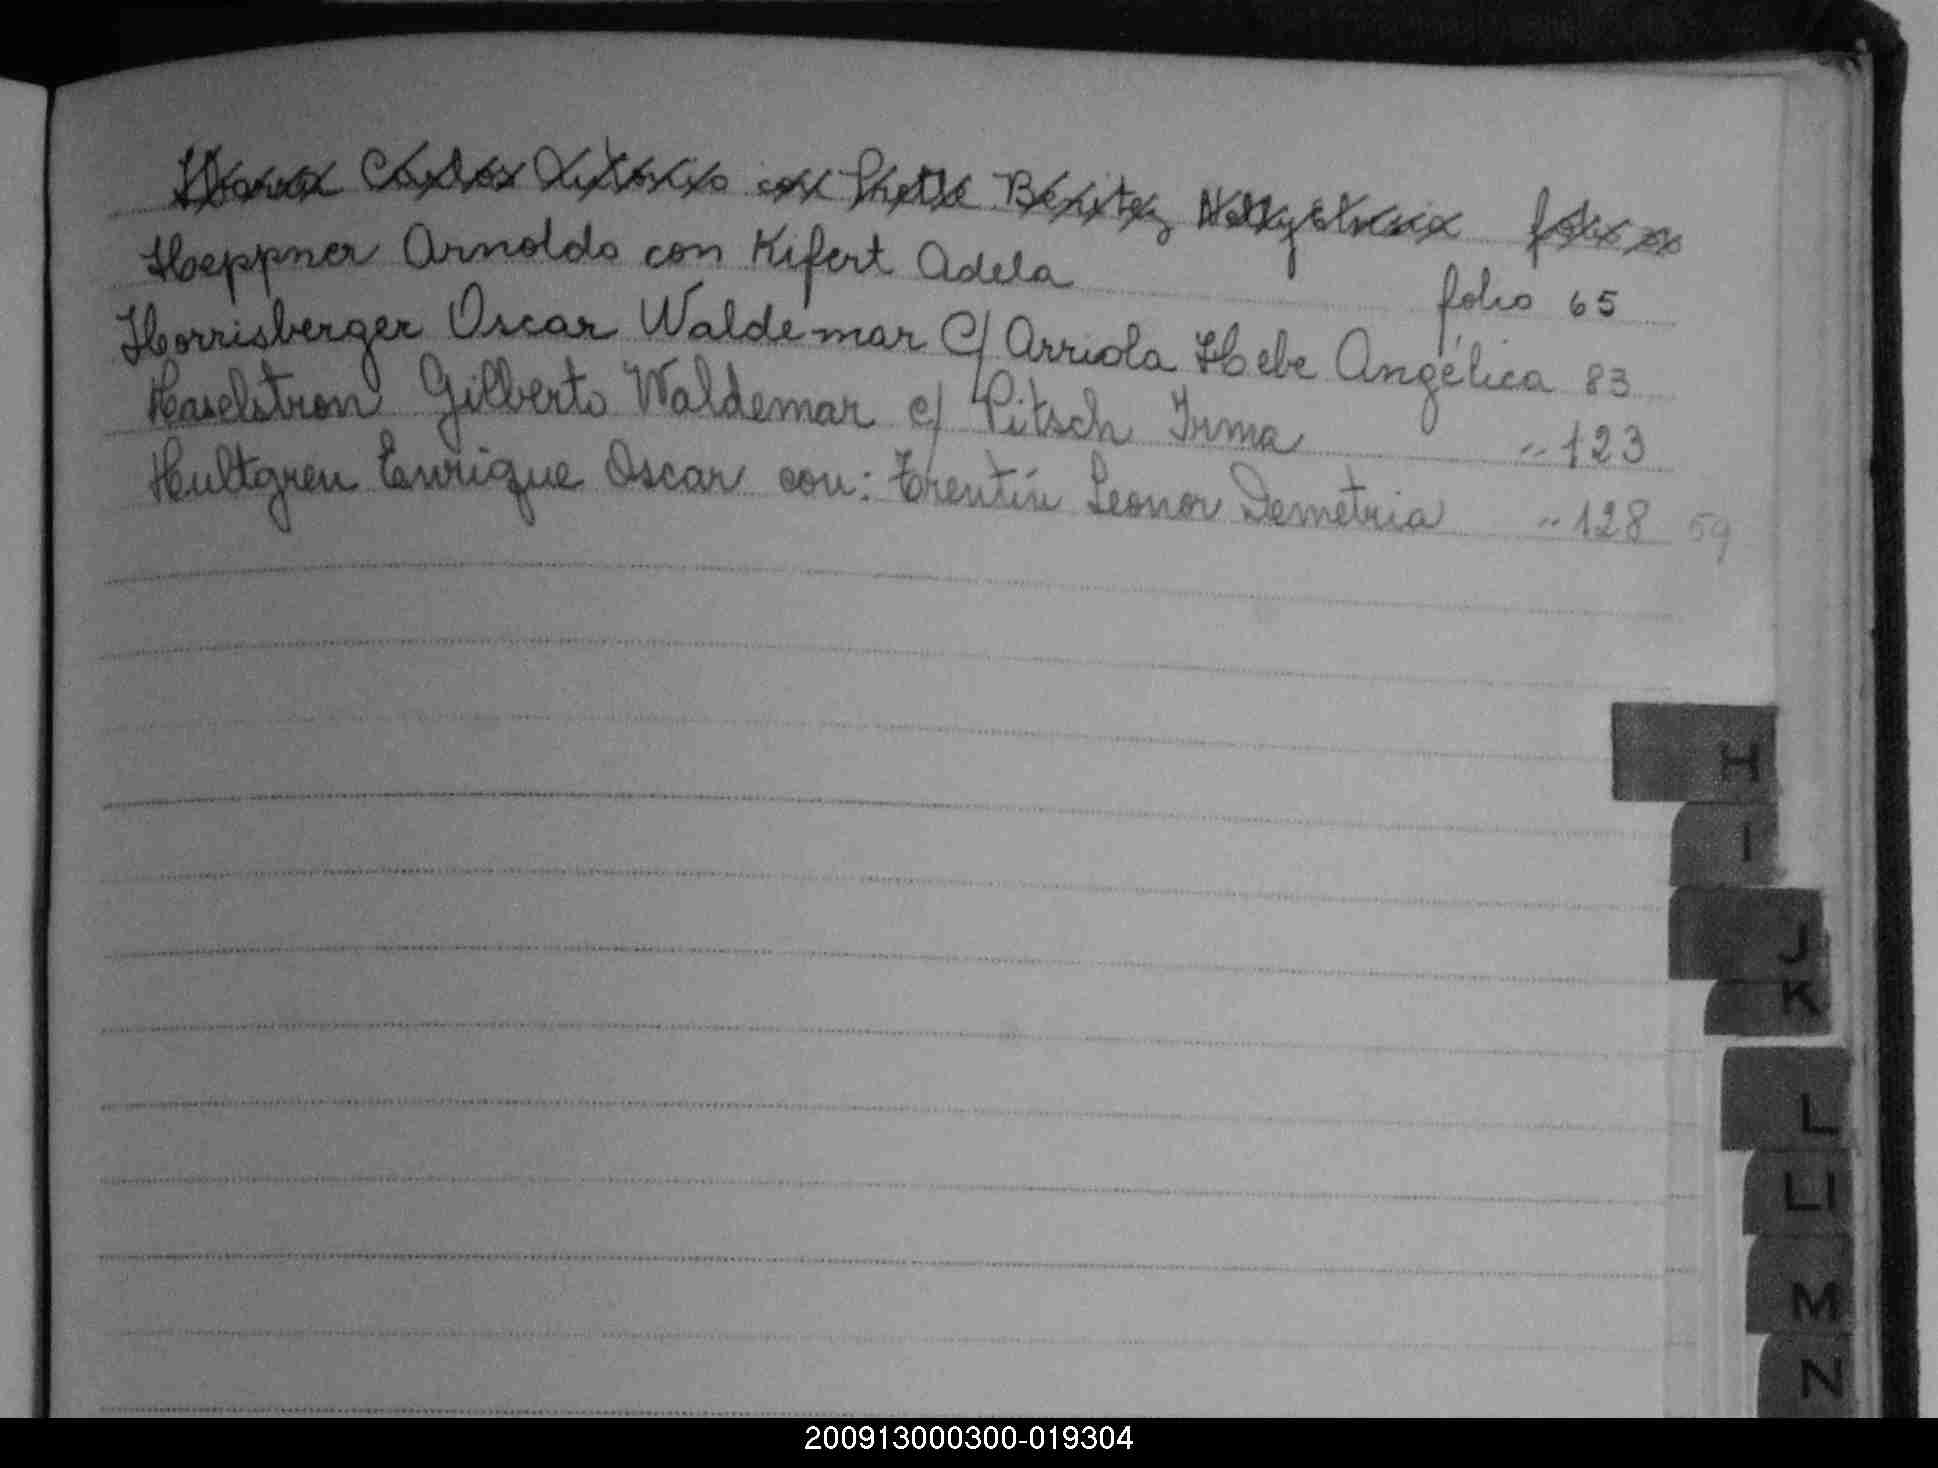 Carlos Antonio con Benitez
Hoeppner Arnoldo con Kifert Adela folio 65
Horrisberger Oscar Waldemar C/ Arriola Hebe Angélica 83
Haselstron Gilberto Waldemar c/ Pitsch Irma " 123
Hultgren Enrique Oscar con: Trentín Leonor Demetria " 128 59
H
I
J
K
L
Ll
M
N
200913000300-019304